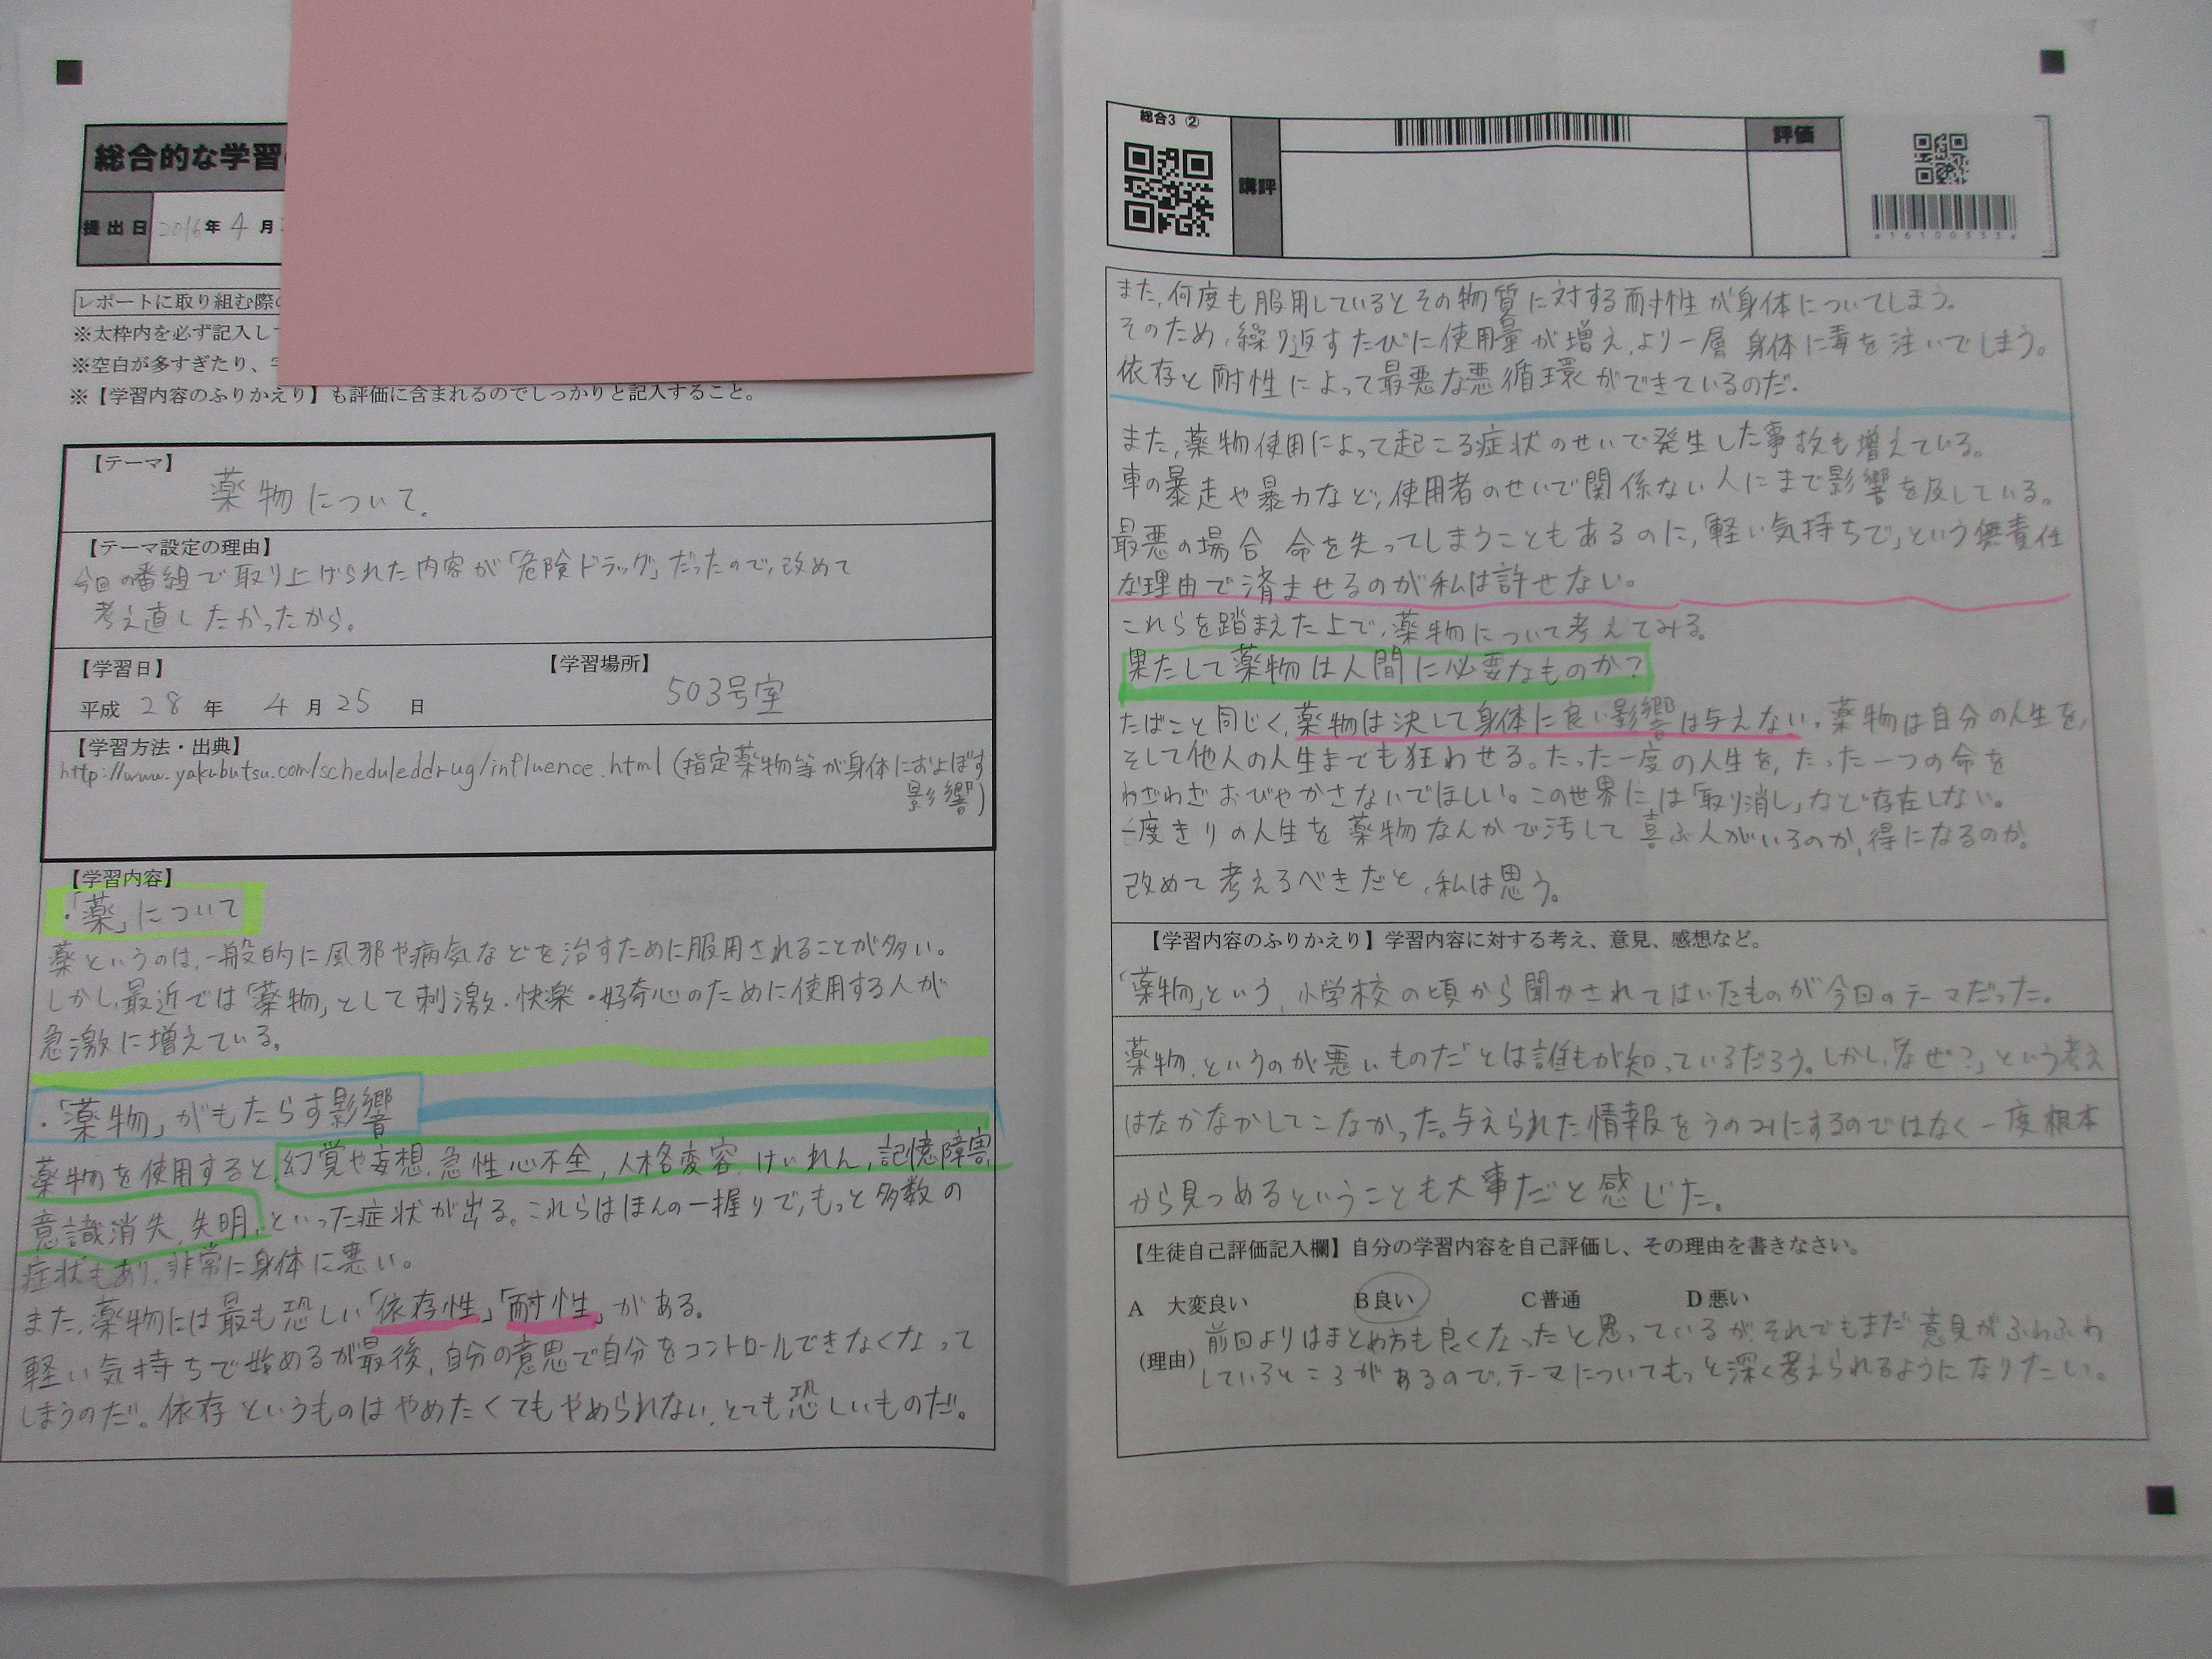 総合的な学習
提出日 2016年 4月
レポートに取り組む際
※太枠内を必ず記入し
※空白が多すぎたり、
※【学習内容のふりかえり】も評価に含まれるのでしっかりと記入すること。
【テーマ】
薬物について.
【テーマ設定の理由】
今回の番組で取り上げられた内容が「危険ドラッグ」だったので、改めて
考え直したかったから。
【学習日】
【学習場所】
平成 28 年 4 月 25 日
503号室
【学習方法・出典】
http://www.yakubutsu.com/scheduleddrug/influence.html (指定薬物等が身体におよぼす
影響)
【学習内容】
・「薬」について
薬というのは、一般的に風邪や病気などを治すために服用されることが多い。
しかし、最近では「薬物」として刺激・快楽・好奇心のために使用する人が
急激に増えている。
・「薬物」がもたらす影響
薬物を使用すると、幻覚や妄想、急性心不全、人格変容、けいれん、記憶障害、
意識消失、失明、といった症状が出る。これらはほんの一握りで、もっと多数の
症状もあり、非常に身体に悪い。
また、薬物には最も恐しい「依存性」「耐性」がある。
軽い気持ちで始めるが最後、自分の意思で自分をコントロールできなくなって
しまうのだ。依存というものはやめたくてもやめられない、とても恐しいものだ。
総合3 ②
講評
評価
a161005334
また、何度も服用しているとその物質に対する耐性が身体についてしまう。
そのため、繰り返すたびに使用量が増え、より一層身体に毒を注いでしまう。
依存と耐性によって最悪な悪循環ができているのだ。
また、薬物使用によって起こる症状のせいで発生した事故も増えている。
車の暴走や暴力など、使用者のせいで関係ない人にまで影響を及している。
最悪の場合 命を失ってしまうこともあるのに、「軽い気持ちで」という無責任
な理由で済ませるのが私は許せない。
これらを踏まえた上で、薬物について考えてみる。
果たして薬物は人間に必要なものか?
たばこと同じく、薬物は決して身体に良い影響は与えない。薬物は自分の人生を、
そして他人の人生までも狂わせる。たった一度の人生を、たった一つの命を
わざわざおびやかさないでほしい。この世界には「取り消し」など存在しない。
一度きりの人生を薬物なんかで汚して喜ぶ人がいるのか、得になるのか。
改めて考えるべきだと、私は思う。
【学習内容のふりかえり】学習内容に対する考え、意見、感想など。
「薬物」という、小学校の頃から聞かされてはいたものが今回のテーマだった。
薬物、というのが悪いものだとは誰もが知っているだろう。しかし、「なぜ?」という考え
はなかなかしてこなかった。与えられた情報をうのみにするのではなく一度根本
から見つめるということも大事だと感じた。
【生徒自己評価記入欄】自分の学習内容を自己評価し、その理由を書きなさい。
A 大変良い B良い C普通 D悪い
前回よりはまとめ方も良くなったと思っているが、それでもまだ意見がふわふわ
(理由) しているところがあるので、テーマについてもっと深く考えられるようになりたい。